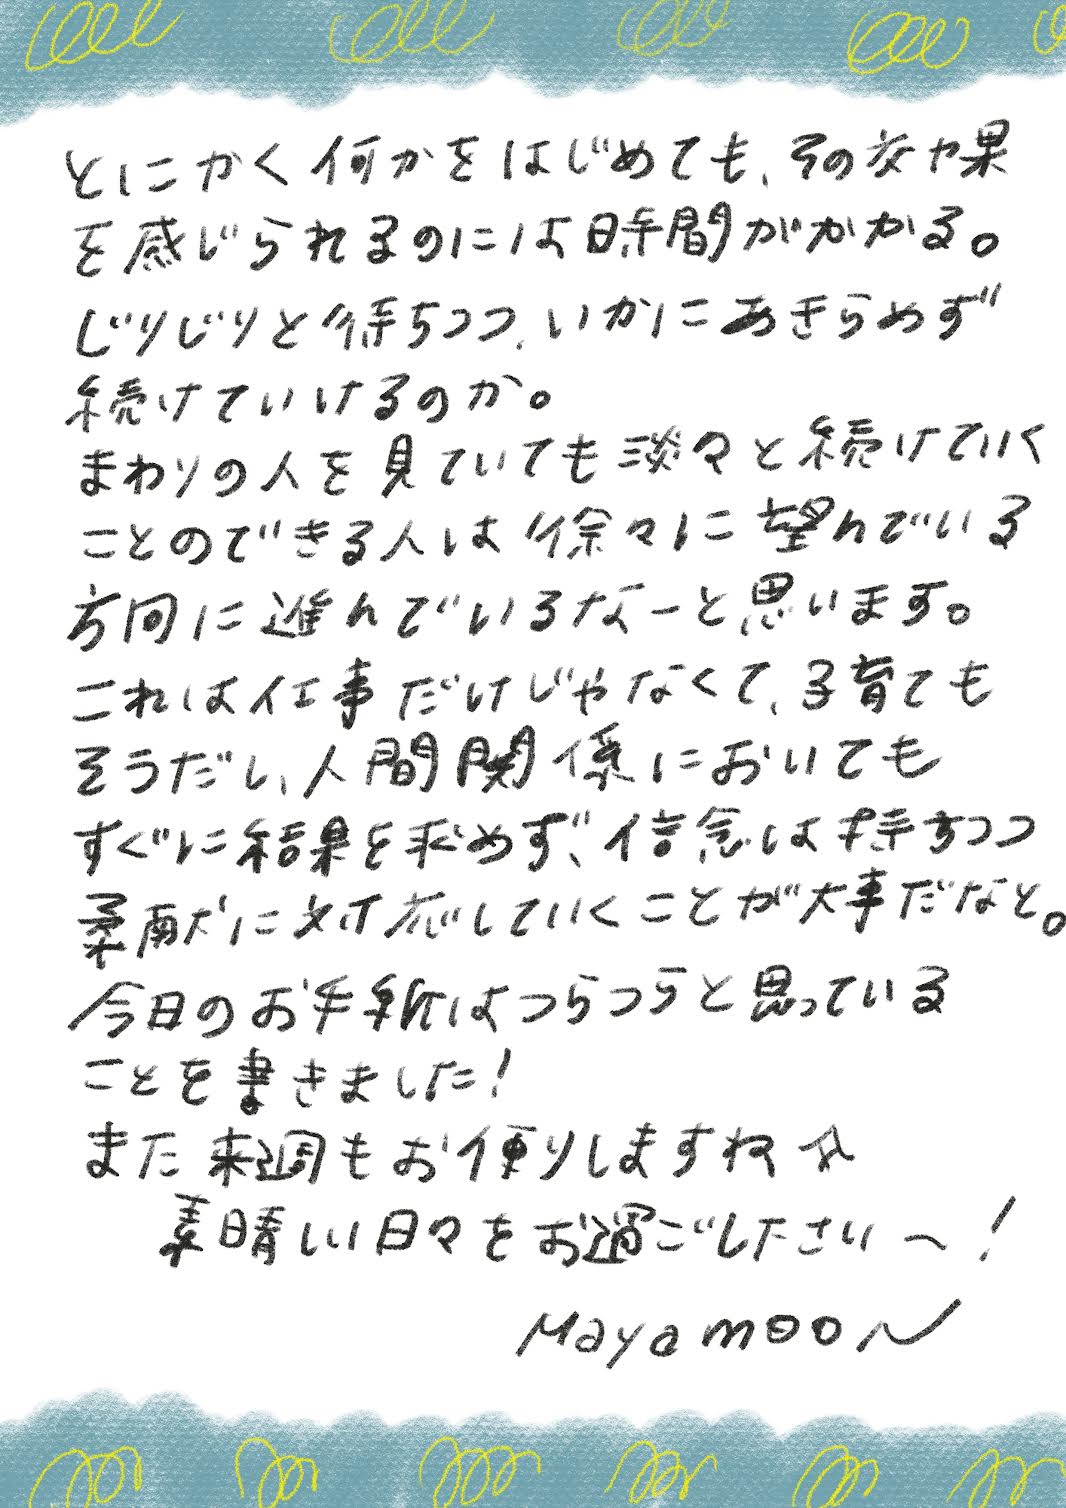 とにかく何かをはじめても、その効果
を感じられるのには時間がかかる。
じりじりと待ちつつ、いかにあきらめず
続けていけるのか。
まわりの人を見ていても淡々と続けていく
ことのできる人は徐々に望んでいる
方向に進んでいるなーと思います。
これは仕事だけじゃなくて、子育ても
そうだし、人間関係においても
すぐに結果を求めず、信念は持ちつつ
柔軟に対応していくことが大事だなと。
今日のお手紙はつらつらと思っている
ことを書きました!
また来週もお便りしますね☆
素晴しい日々をお過ごし下さい〜!
Mayamoon